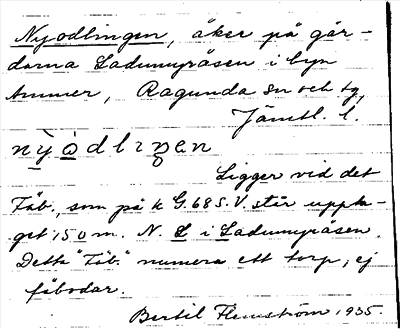 Nyodlingen, åker på går-
darna Ladumyråsen i byn
Ammer, Ragunda sn och tg,
Jämtl. l.
nỳo̲dlıŋen
Ligger vid det
Fäb., som på k G.68 S.V. står uppta-
get 150 m. N. L i Ladumyråsen.
Detta "Fäb." numera ett torp, ej
fäbodar.
Bertil Flemström 1935.